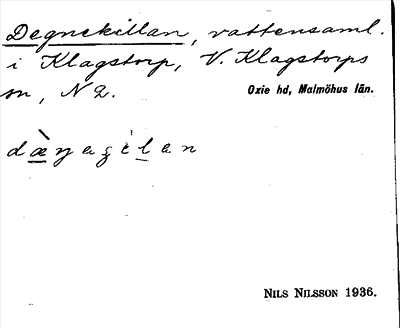 Degnekillan, vattensaml.
i Klagstorp, V. Klagstorps
sn, N 2.
Oxie hd, Malmöhus län.
NILS NILSSON 1936.